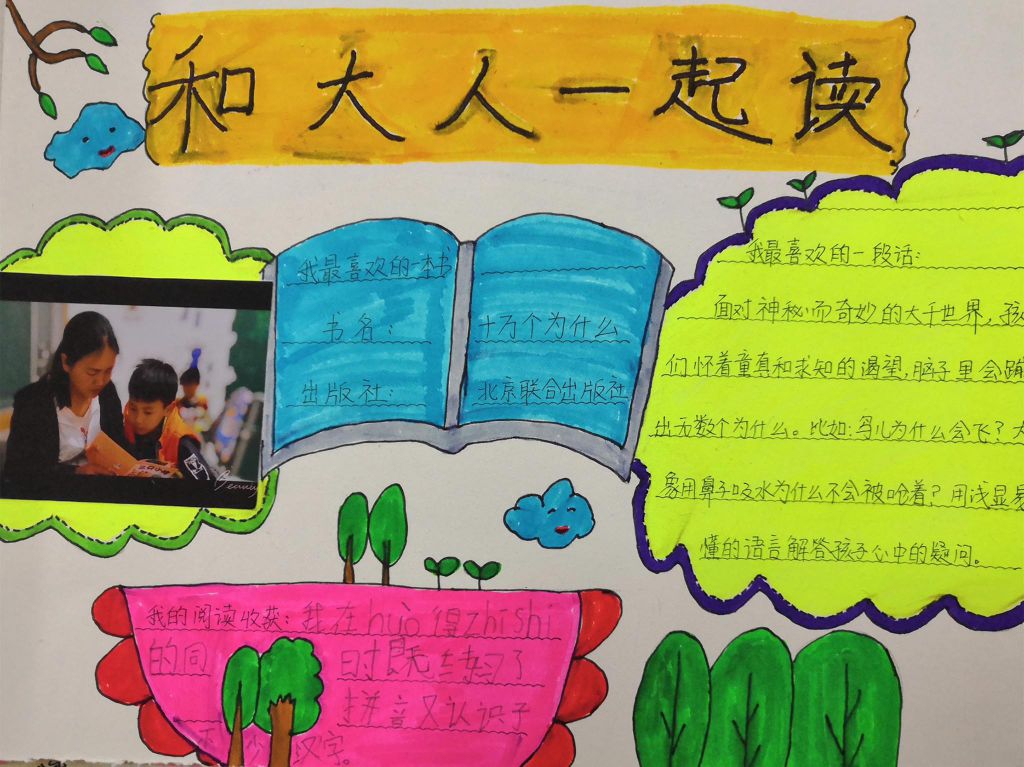 和大人一起读
我最喜欢的一本书
书名: 十万个为什么
出版社: 北京联合出版社
我最喜欢的一段话:
面对神秘而奇妙的大千世界,孩
们怀着童真和求知的渴望,脑子里会蹦
出无数个为什么。比如:鸟儿为什么会飞?大
象用鼻子吸水为什么不会被呛着?用浅显易
懂的语言解答孩子心中的疑问。
我的阅读收获: 我在huò得zhi shi
的同时既练习了
拼音又认识了
不少汉字。